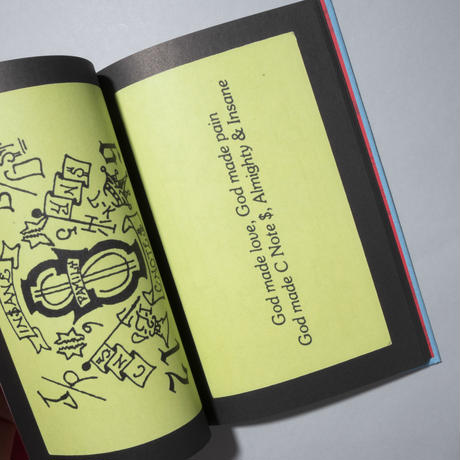 INSANE
FAMILY
C-NOTE $
CNS
God made love, God made pain
God made C Note $, Almighty & Insane